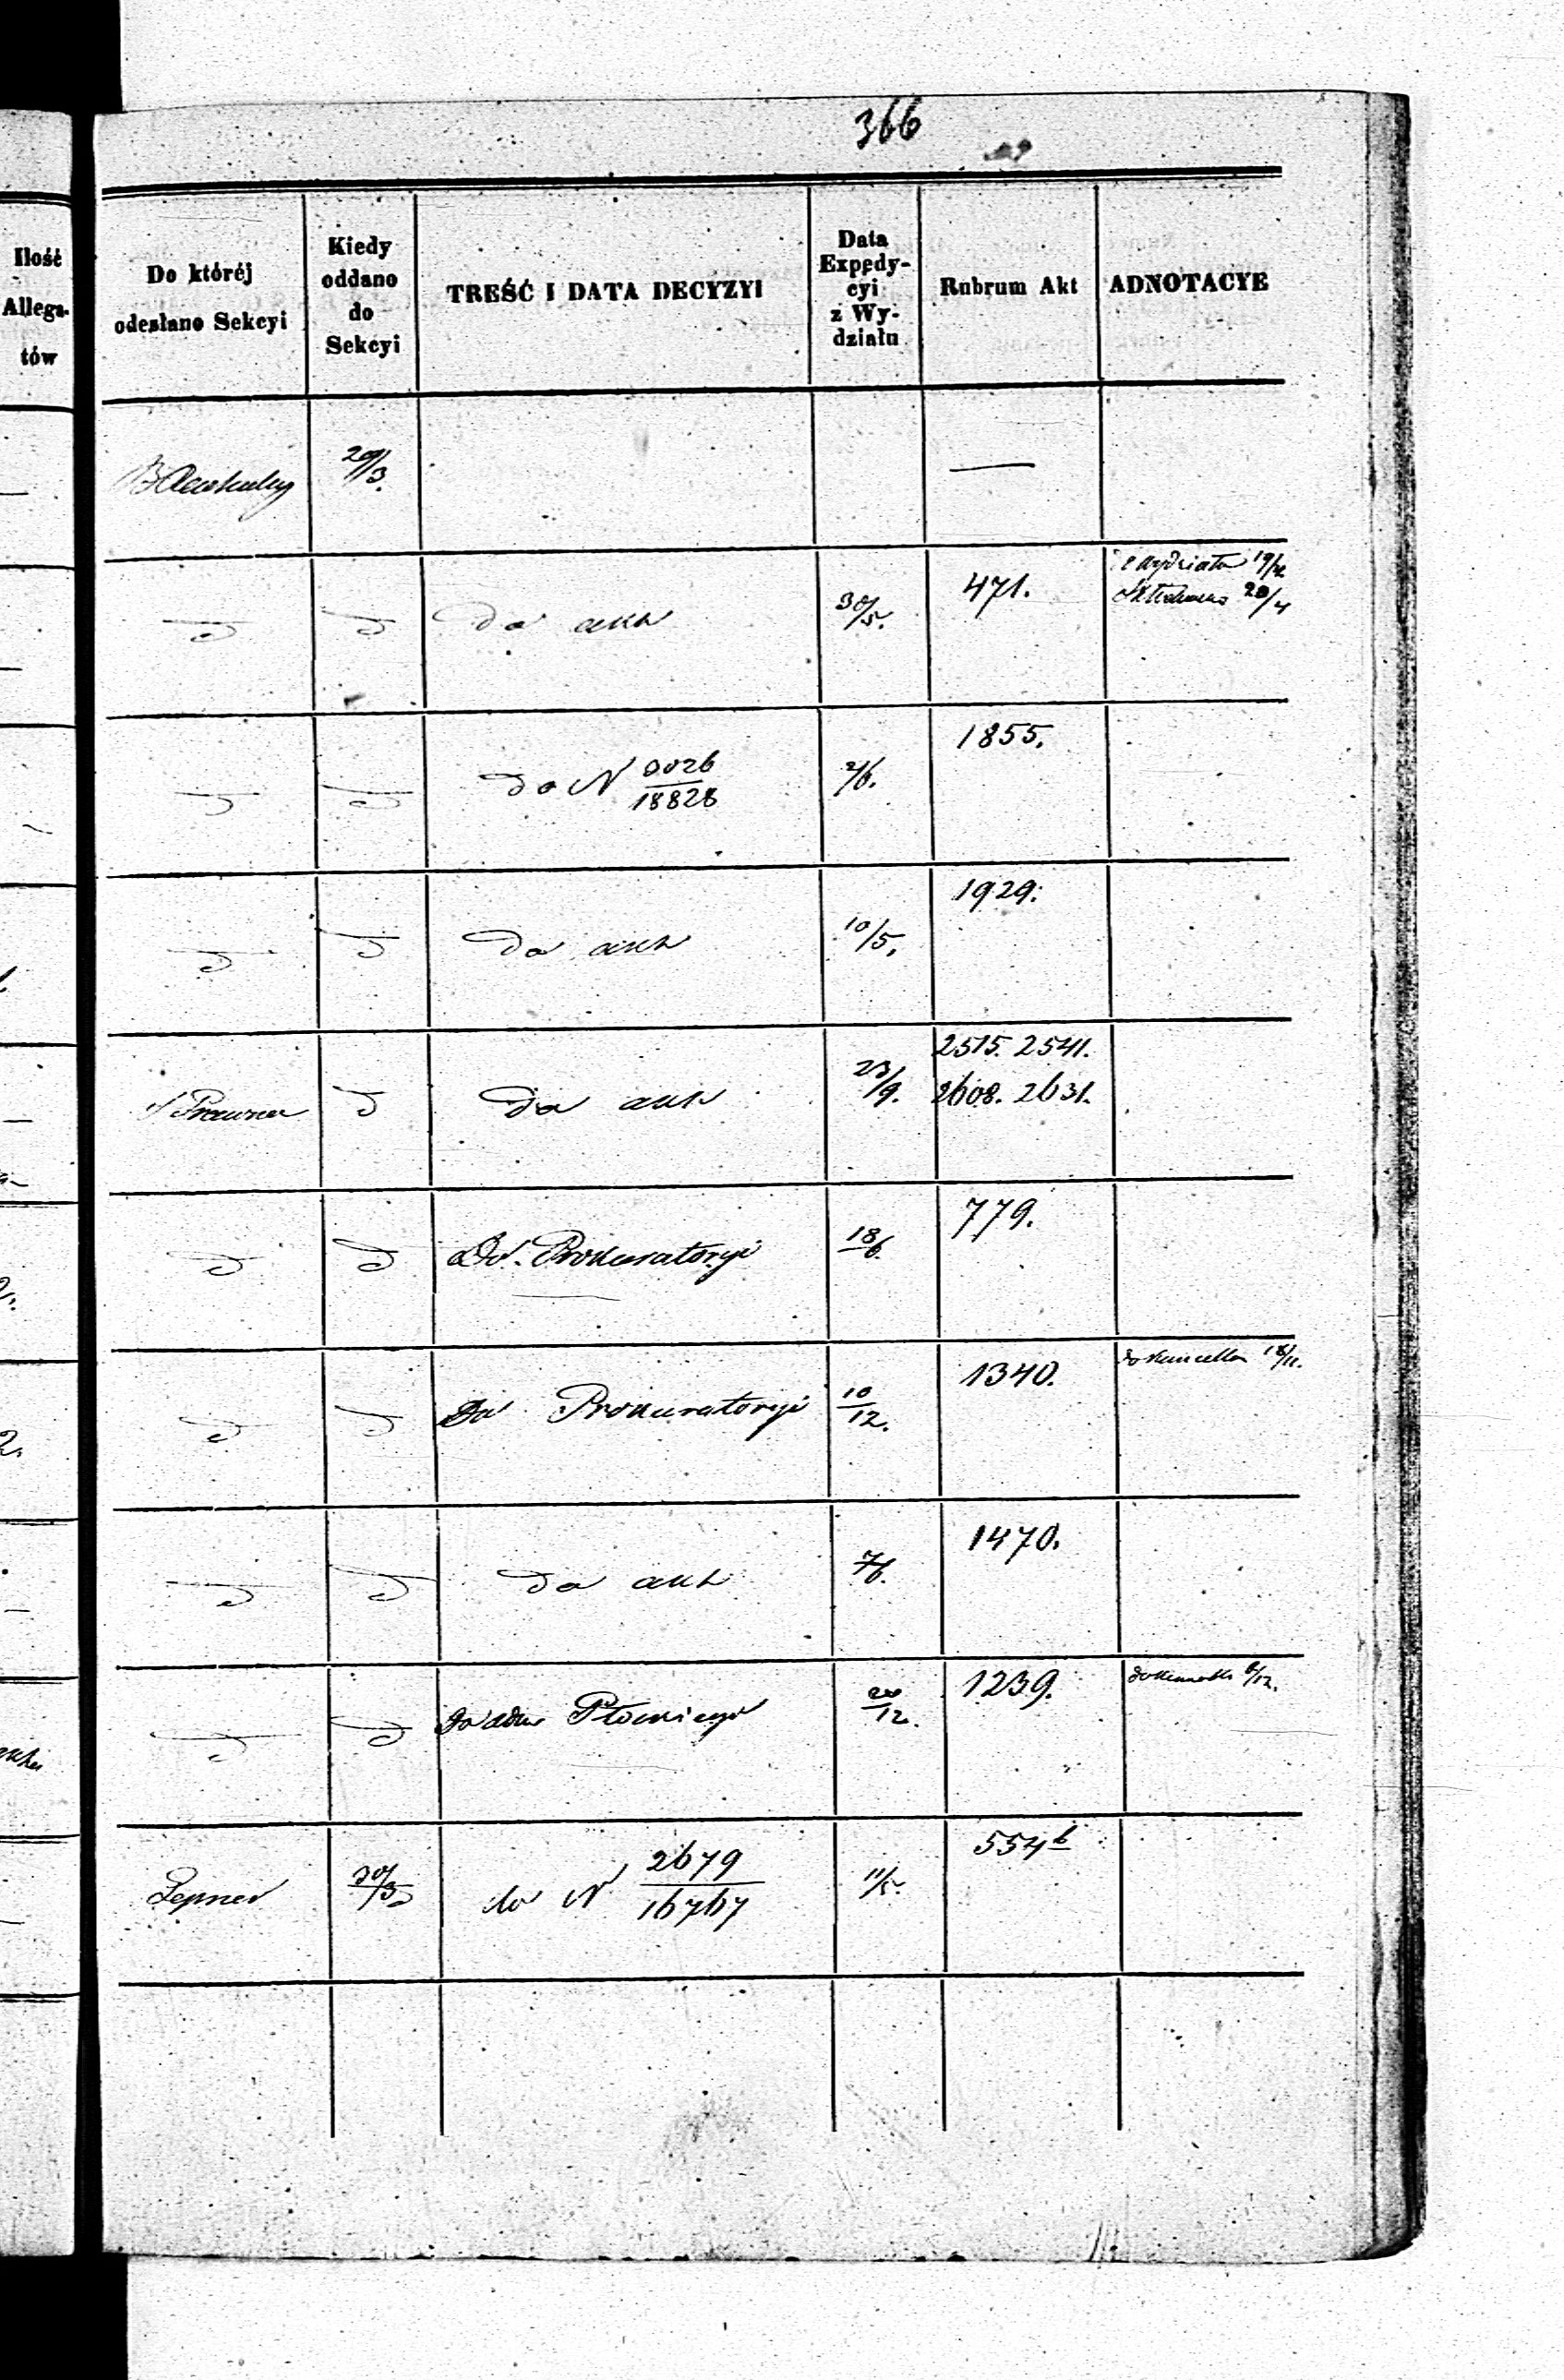 366
Ilość
Allega-
tów
Do któréj
odesłano Sekcyi
Kiedy
oddano
do
Sekcyi
TREŚĆ I DATA DECYZYI
Data
Expedy-
cyi
z Wy-
działu
Rubrum Akt
ADNOTACYE
29/3.
—
do akt
30/5.
471.
z wydziału 19/4
20/4
do N 9026/18828
2/6.
1855.
do akt
10/5.
1929.
S Prawna
do akt
23/9.
2515. 2541.
2608. 2631.
Do Prokuratoryi
18/6.
779.
Do Prokuratoryi
10/12.
1340.
18/11.
do akt
7/6.
1470.
20/12.
1239.
6/12.
Lepner
30/3
do N 2679/16767
11/5.
554b